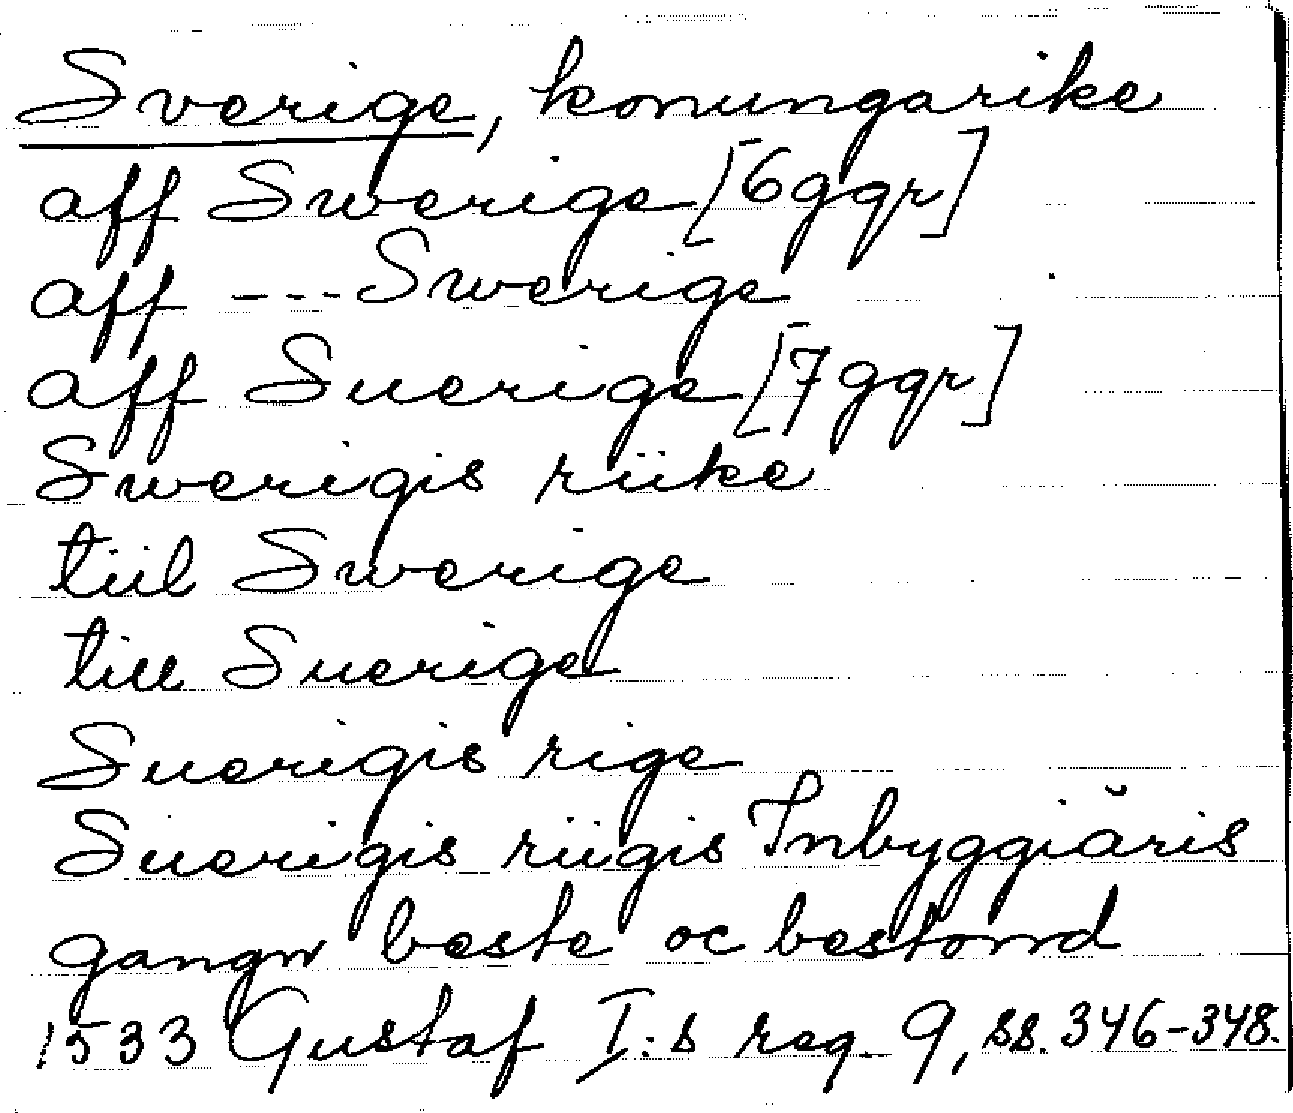 Sverige, konungarike
aff Swerige [6 ggr]
aff --- Swerige
aff Suerige [7 ggr]
Swerigis riike
tiil Swerige
till Suerige
Suerigis rige
Suerigis riigis Inbyggiăris
gangn beste oc bestond
1533 Gustaf I:s reg. 9, ss. 346-348.